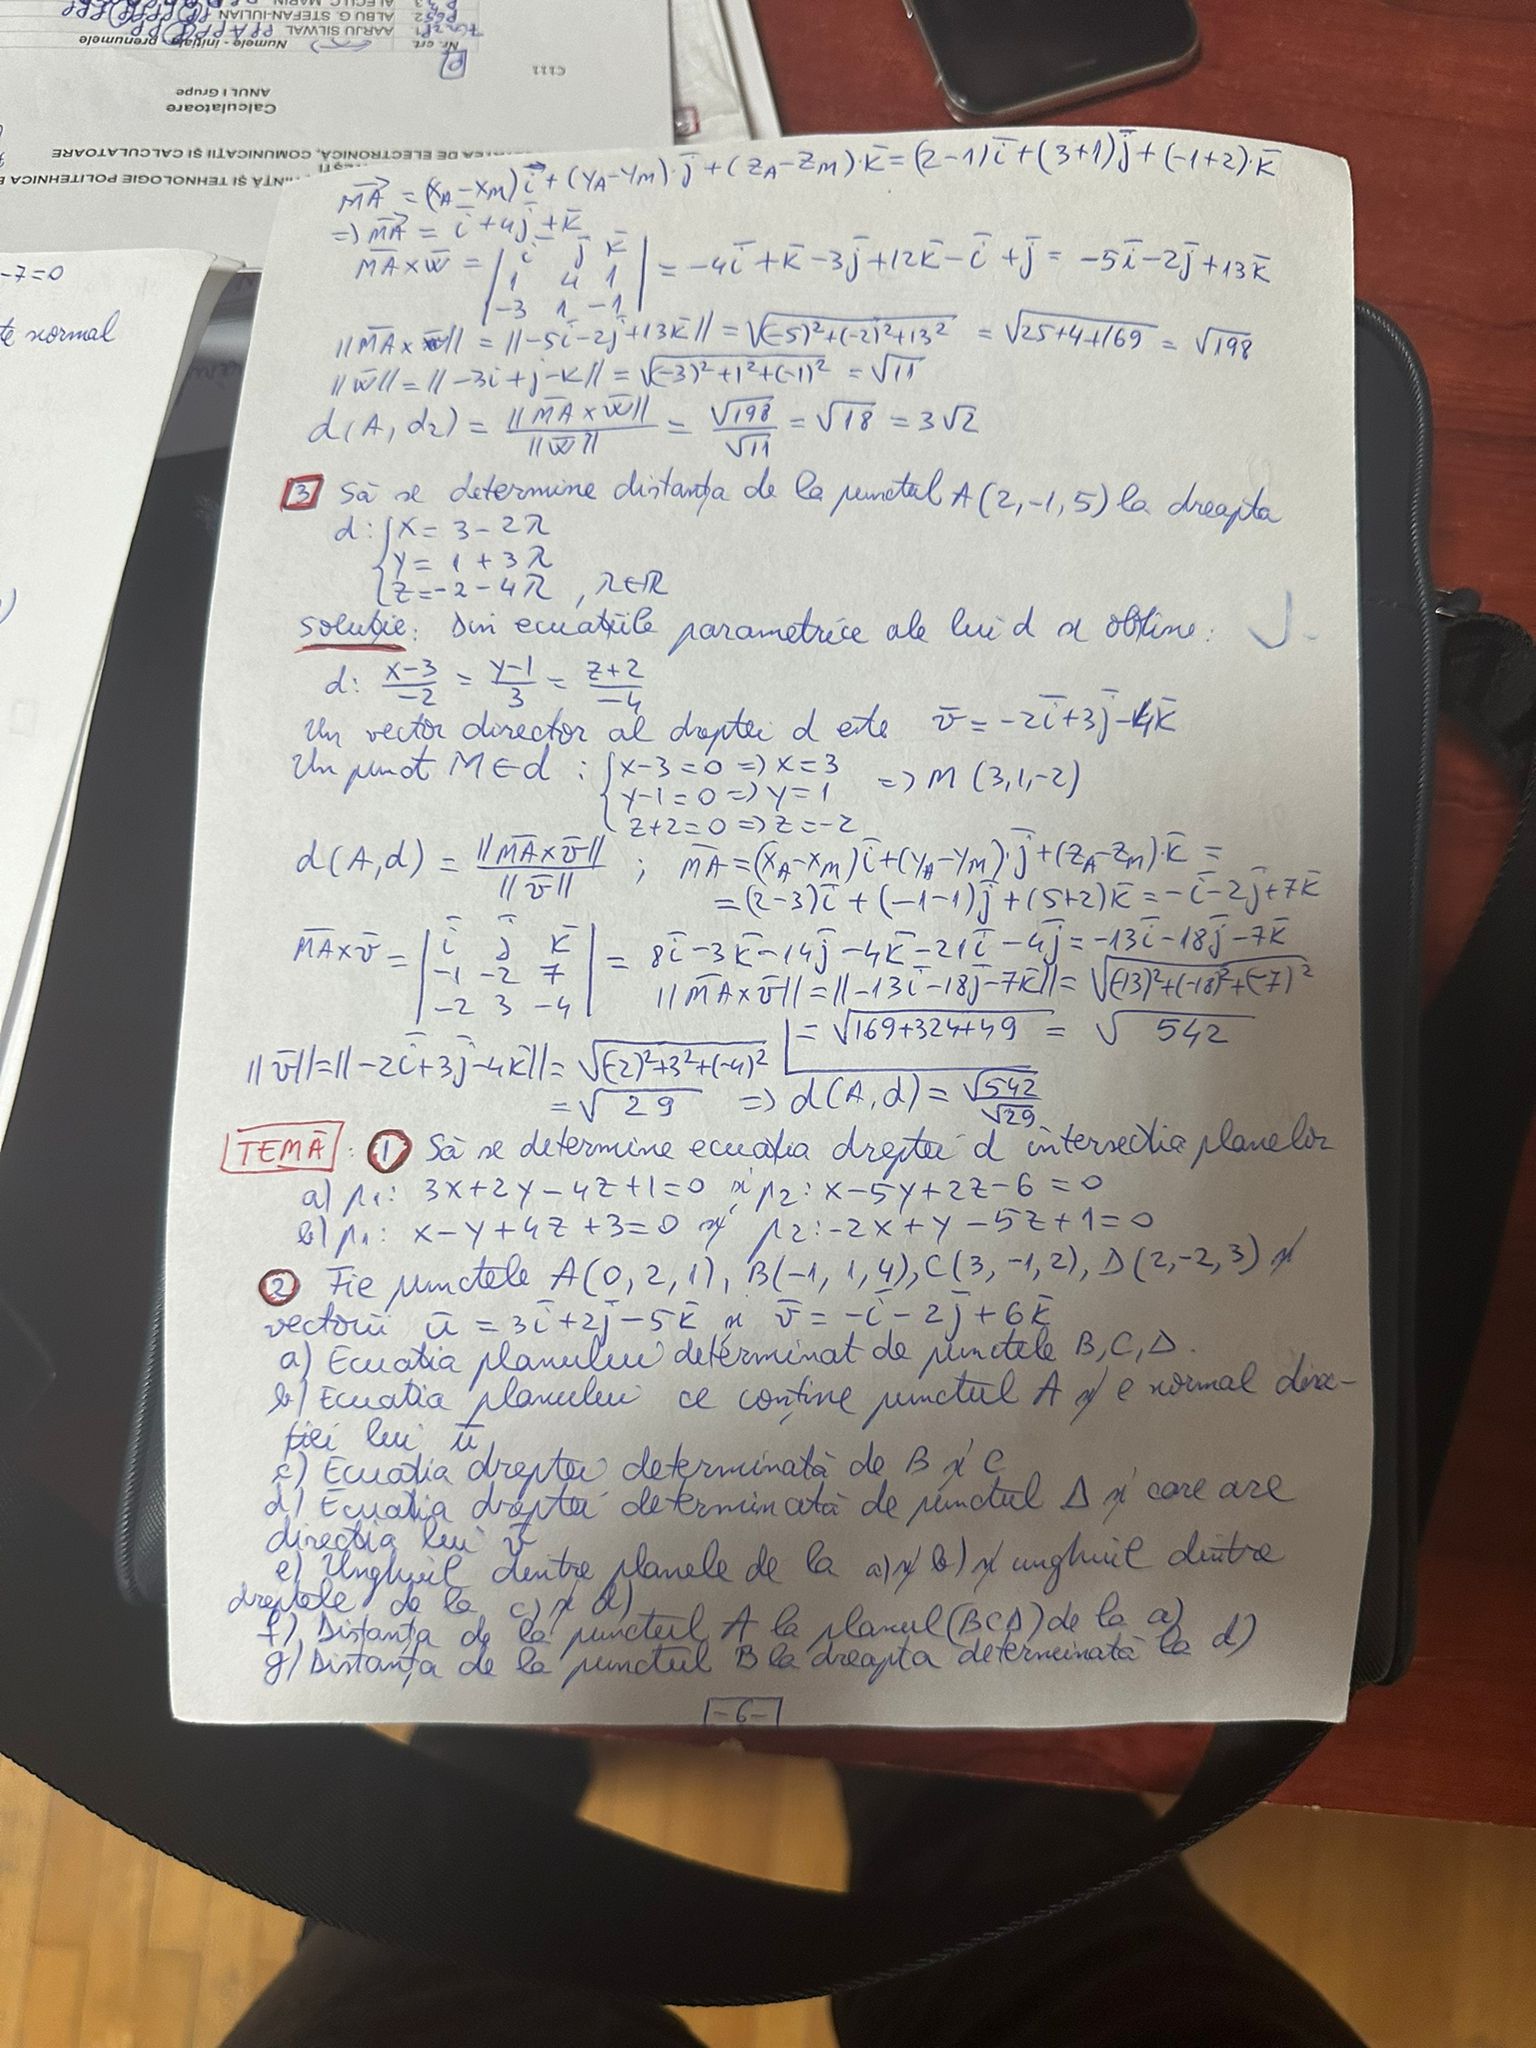 C111
ANUL I Grupe
Calculatoare
Nr. crt. Numele - inițiale - prenumele
AARJU SILWAL
ALBU G. STEFAN-IULIAN
DE ELECTRONICA, COMUNICAȚII ȘI CALCULATOARE
ȘI TEHNOLOGIE POLITEHNICA
-7=0
normal
MA = (xA-xM)i+(yA-yM)·j+(zA-zM)·k=(2-1)i+(3+1)j+(-1+2)·k
=> MA = i+4j+k
MA×w = | i j k | = -4i+k-3j+12k-i+j = -5i-2j+13k
1 4 1
-3 1 -1
||MA×w|| = ||-5i-2j+13k|| = √(-5)²+(-2)²+13² = √25+4+169 = √198
||w|| = ||-3i+j-k|| = √(-3)²+1²+(-1)² = √11
d(A,d2) = ||MA×w|| / ||w|| = √198 / √11 = √18 = 3√2
3 Să se determine distanța de la punctul A(2,-1,5) la dreapta
d: { x = 3-2λ
y = 1+3λ
z = -2-4λ , λ∈R
Soluție: Din ecuațiile parametrice ale lui d se obține:
d: x-3/-2 = y-1/3 = z+2/-4
Un vector director al dreptei d este v = -2i+3j-4k
Un punct M∈d : { x-3=0 => x=3 => M(3,1,-2)
y-1=0 => y=1
z+2=0 => z=-2
d(A,d) = ||MA×v|| / ||v|| ; MA = (xA-xM)i+(yA-yM)·j+(zA-zM)·k =
= (2-3)i+(-1-1)j+(5+2)k = -i-2j+7k
MA×v = | i j k | = 8i-3k-14j-4k-21i-4j = -13i-18j-7k
-1 -2 7
-2 3 -4
||MA×v|| = ||-13i-18j-7k|| = √(-13)²+(-18)²+(-7)²
= √169+324+49 = √542
||v|| = ||-2i+3j-4k|| = √(-2)²+3²+(-4)²
= √29 => d(A,d) = √542 / √29
TEMĂ: 1 Să se determine ecuația dreptei d intersecția planelor
a) p1: 3x+2y-4z+1=0 și p2: x-5y+2z-6=0
b) p1: x-y+4z+3=0 și p2: -2x+y-5z+1=0
2 Fie punctele A(0,2,1), B(-1,1,4), C(3,-1,2), D(2,-2,3) și
vectorii u = 3i+2j-5k și v = -i-2j+6k
a) Ecuația planului determinat de punctele B,C,D.
b) Ecuația planului ce conține punctul A și e normal direc-
ției lui u
c) Ecuația dreptei determinată de B și C
d) Ecuația dreptei determinată de punctul D și care are
direcția lui v
e) Unghiul dintre planele de la a) și b) și unghiul dintre
dreptele de la c) și d)
f) Distanța de la punctul A la planul (BCD) de la a)
g) Distanța de la punctul B la dreapta determinată la d)
-6-